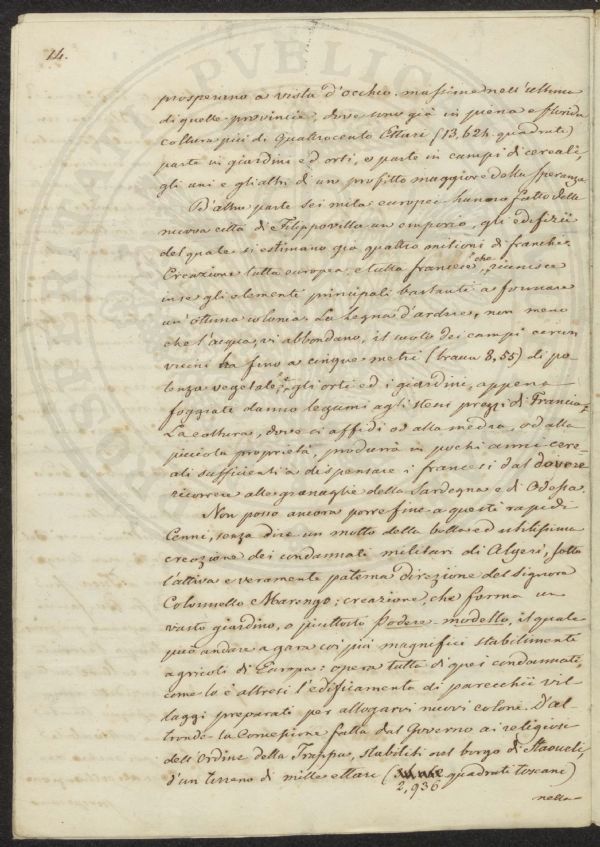 14.
prosperano a vista d'occhio, massime nell'ultima
di quelle provincie, dove sono già in piena e florida
coltura più di Quattrocento Ettari (13,624. quadrati)
parte in giardini ed orti, e parte in campi di cereali,
gli uni e gli altri di un profitto maggiore della speranza.
D'altra parte sei mila europei hanno fatto della
nuova città di Filippovilla un emporio, gli edifizii
del quale si estimano già quattro milioni di franchi.
Creazione tutta europea, e tutta francese, che riunisce
in se gli elementi principali bastanti a formare
un'ottima colonia. La legna d'ardere, non meno
che l'acqua, vi abbondano, il suolo dei campi circon
vicini ha fino a cinque metri (braccia 8,55) di po-
tenza vegetale, e gli orti ed i giardini, appena
foggiati danno legumi agli stessi prezzi di Francia.
La coltura, dove si affidi od alla media, od alla
piccola proprietà, produrrà in pochi anni cere-
ali sufficienti a dispensare i francesi dal dovere
ricorrere alle granaglie della Sardegna e di Odessa.
Non posso ancora porre fine a questi rapidi
Cenni, senza dire un motto della bella ed utilissima
creazione dei condannati militari di Algeri, sotto
l'attiva e veramente paterna direzione del Signore
Colonnello Marengo; creazione, che forma un
vasto giardino, o piuttosto Podere-modello, il quale
può andare a gara coi più magnifici stabilimenti
agricoli di Europa: opera tutta di quei condannati,
come lo è altresì l'edificamento di parecchii vil-
laggi preparati per allogarvi nuovi coloni. D'al-
tronde la Concessione fatta dal Governo ai religiosi
dell'Ordine della Trappa, stabiliti nel borgo di Staoueli,
d'un terreno di mille ettari ( quadrati toscani)
2,936
nella